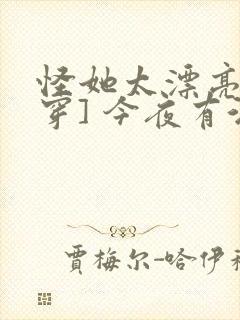 怪她太漂亮
穿] 今夜有
贾梅尔-哈伊